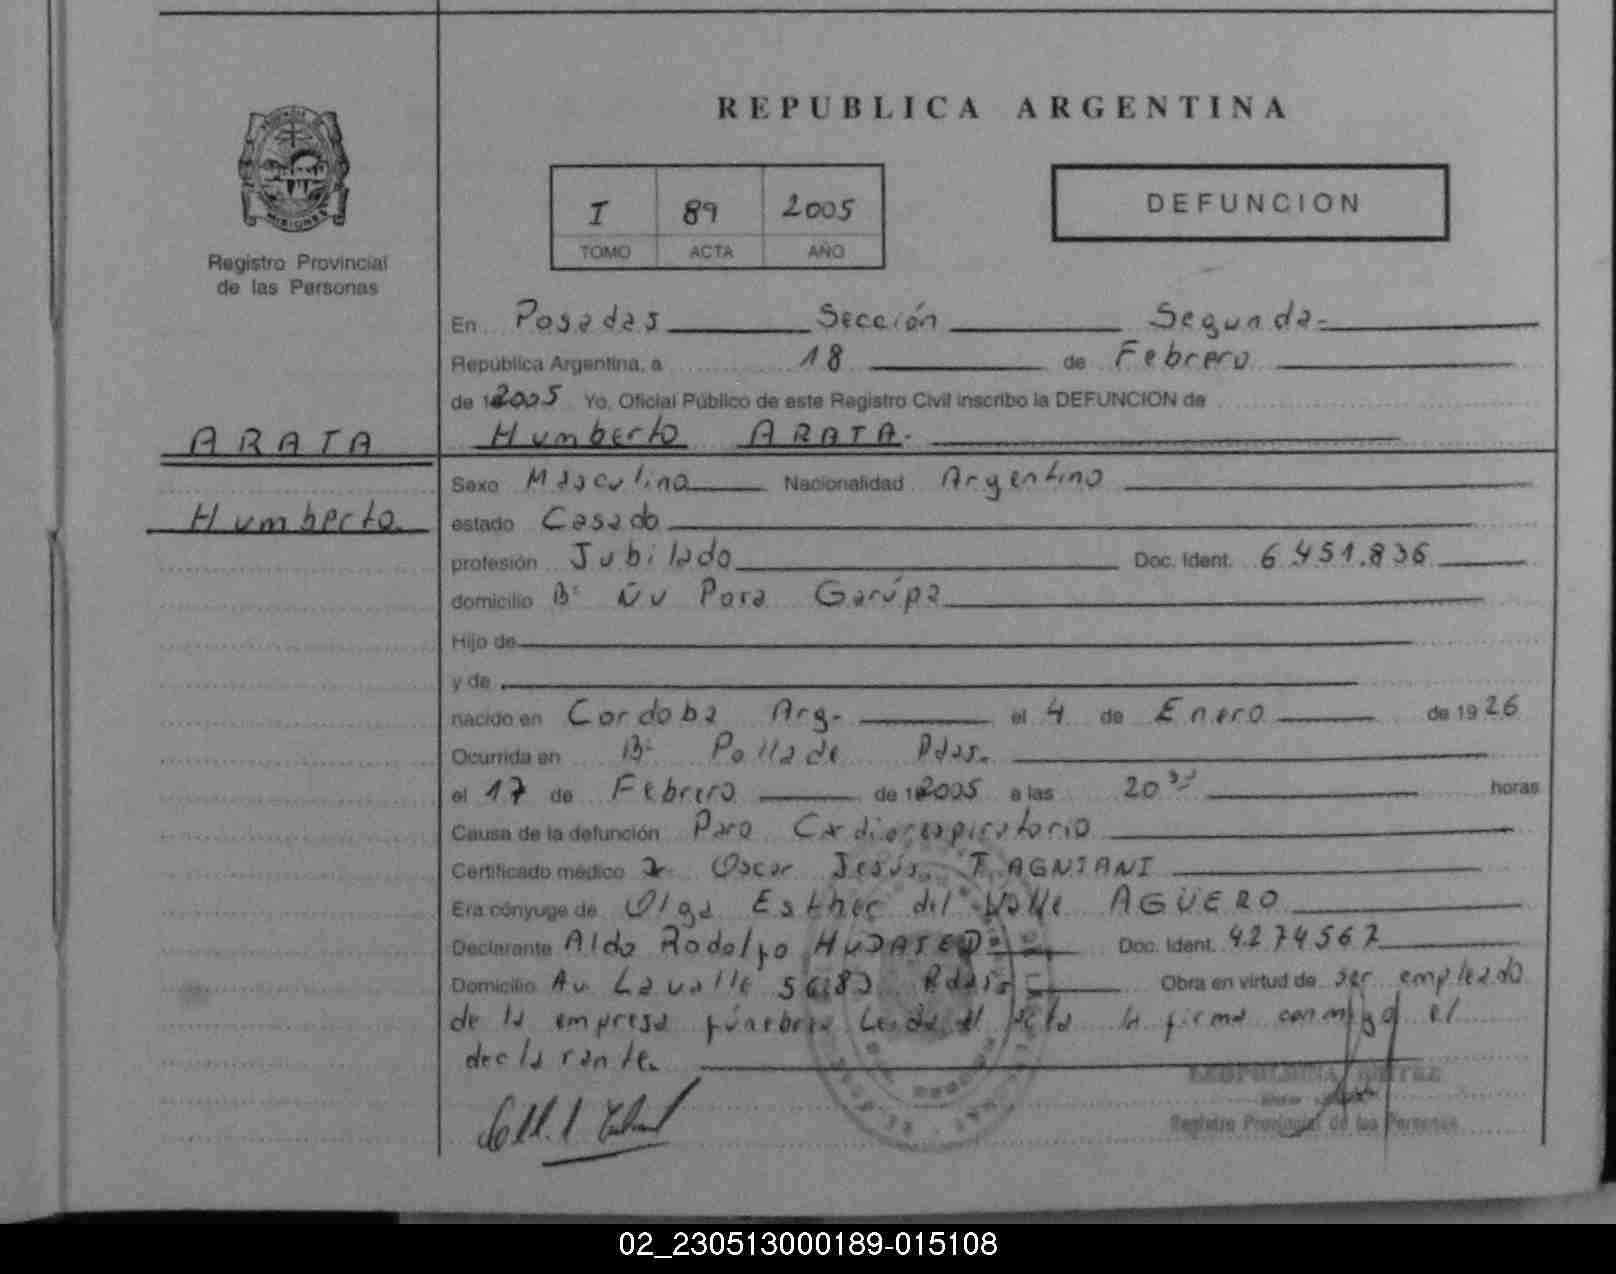 REPUBLICA ARGENTINA
PROVINCIA DE
MISIONES
Registro Provincial
de las Personas
I 89 2005
TOMO ACTA AÑO
DEFUNCION
En Posadas Sección Segunda
República Argentina, a 18 de Febrero
de 2005 Yo, Oficial Público de este Registro Civil inscribo la DEFUNCION de
ARATA
Humberto ARATA.
Humberto.
Sexo Masculino Nacionalidad Argentino
estado Casado
profesión Jubilado Doc. Ident. 6.451.836
domicilio Bº Ñu Pora Garúpa
Hijo de
y de
nacido en Cordoba Arg. el 4 de Enero de 1926
Ocurrida en Bº Pdas.
el 17 de Febrero de 2005 a las 20 horas
Causa de la defunción Paro Cardiorespiratorio
Certificado médico Dr Oscar Jesús
Era cónyuge de Olga Esther del Valle AGÜERO
Declarante Aldo Rodolfo Doc. Ident. 4274567
Domicilio Av Lavalle Pdas. Obra en virtud de ser empleado
de la empresa fúnebre Leida el acta la firma conmigo el
declarante.
Registro Provincial de las Personas
02_230513000189-015108